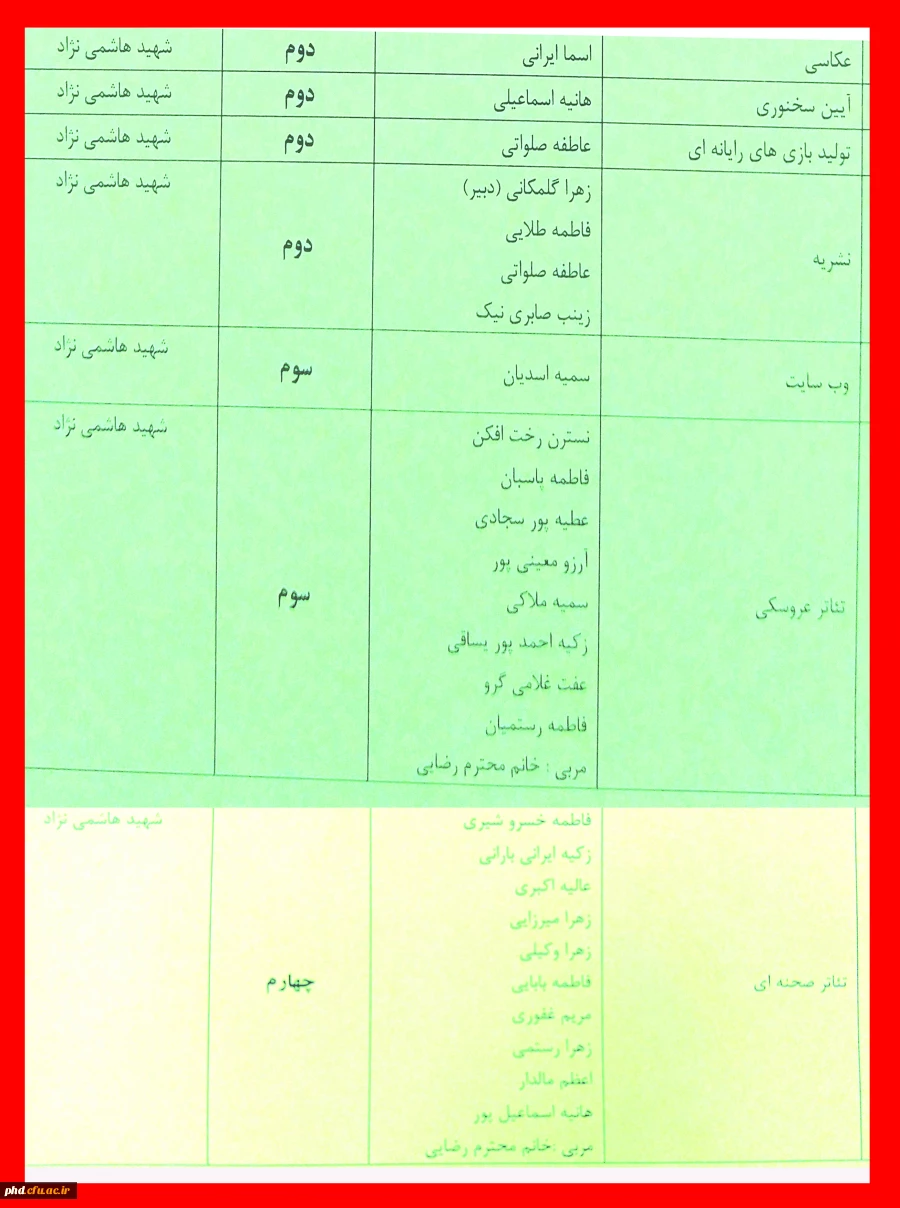 عکاسی اسما ایرانی دوم شهید هاشمی نژاد
آیین سخنوری هانیه اسماعیلی دوم شهید هاشمی نژاد
تولید بازی های رایانه ای عاطفه صلواتی دوم شهید هاشمی نژاد
نشریه
زهرا گلمکانی (دبیر)
فاطمه طلایی
عاطفه صلواتی
زینب صابری نیک
دوم
شهید هاشمی نژاد
وب سایت سمیه اسدیان سوم شهید هاشمی نژاد
تئاتر عروسکی
نسترن رخت افکن
فاطمه پاسبان
عطیه پور سجادی
آرزو معینی پور
سمیه ملاکی
زکیه احمد پور یساقی
عفت غلامی گرو
فاطمه رستمیان
مربی : خانم محترم رضایی
سوم
شهید هاشمی نژاد
تئاتر صحنه ای
فاطمه خسرو شیری
زکیه ایرانی یارانی
عالیه اکبری
زهرا میرزایی
زهرا وکیلی
فاطمه بابایی
مریم غفوری
زهرا رستمی
اعظم مالدار
هانیه اسماعیل پور
مربی :خانم محترم رضایی
چهارم
شهید هاشمی نژاد
phd.cfu.ac.ir